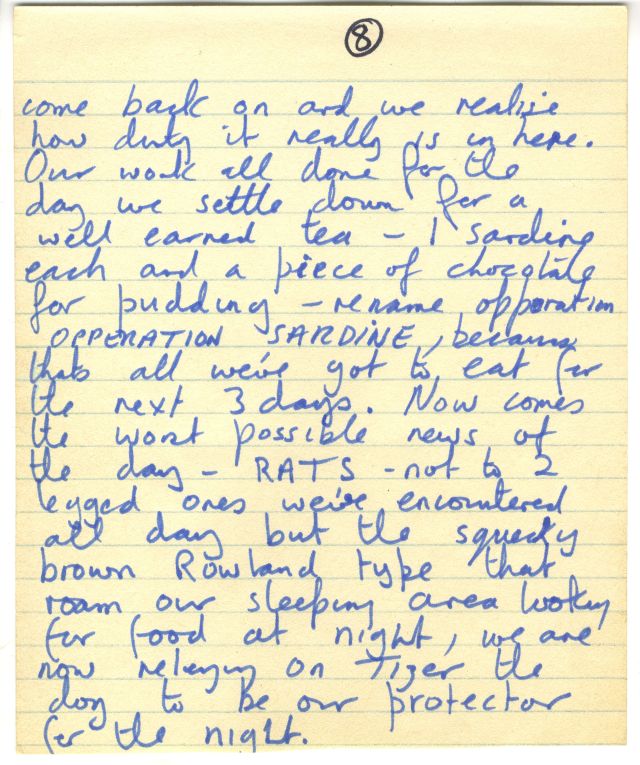 8
come back on and we realise
how dirty it really is in here.
Our work all done for the
day we settle down for a
well earned tea – 1 sardine
each and a piece of chocolate
for pudding – rename opporation
OPPERATION SARDINE, because
thats all we've got to eat for
the next 3 days. Now comes
the worst possible news of
the day – RATS - not to 2
legged ones we've encountered
all day but the squeeky
brown Rowland type that
roam our sleeping area looking
for food at night, we are
now relaying on Tizer the
dog to be our protector
for the night.